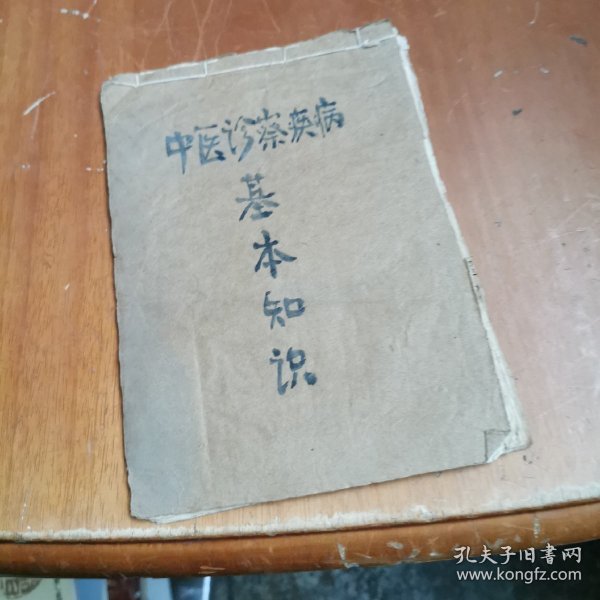 中医诊察疾病
基本知识
孔夫子旧书网
www.kongfz.com